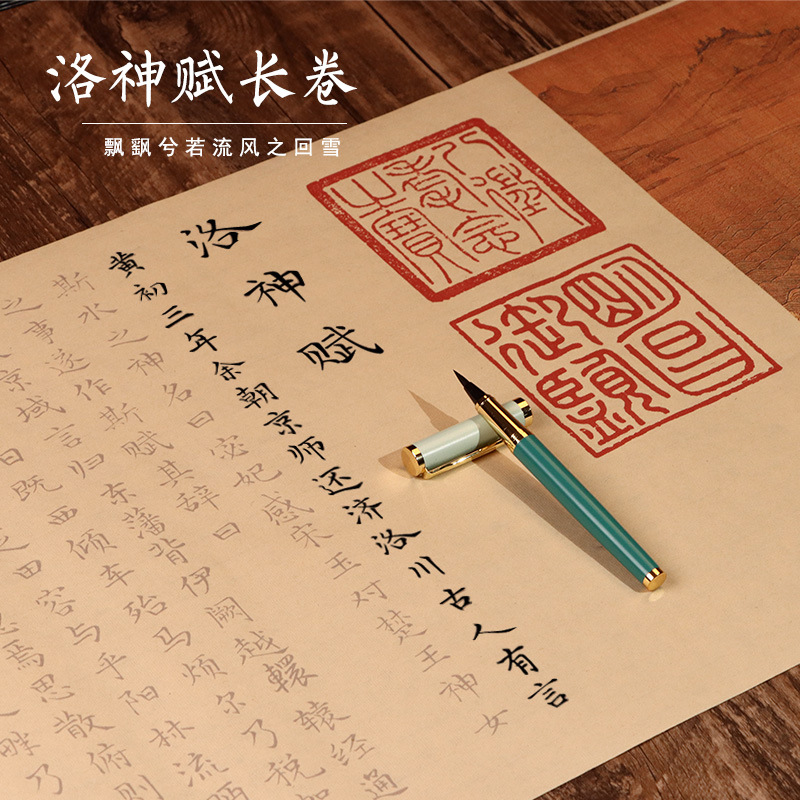 洛神赋长卷
飘飖兮若流风之回雪
八徵耄念之寶
明昌御覽
洛神赋
黄初三年余朝京师还济洛川古人有言
斯水之神名曰宓妃感宋玉对楚王神女
之事遂作斯赋其辞曰
京域言归东藩背伊阙越轘辕经通
日既西倾车殆马烦尔乃税
田容与乎阳林流眄
焉思散俯则
畔乃